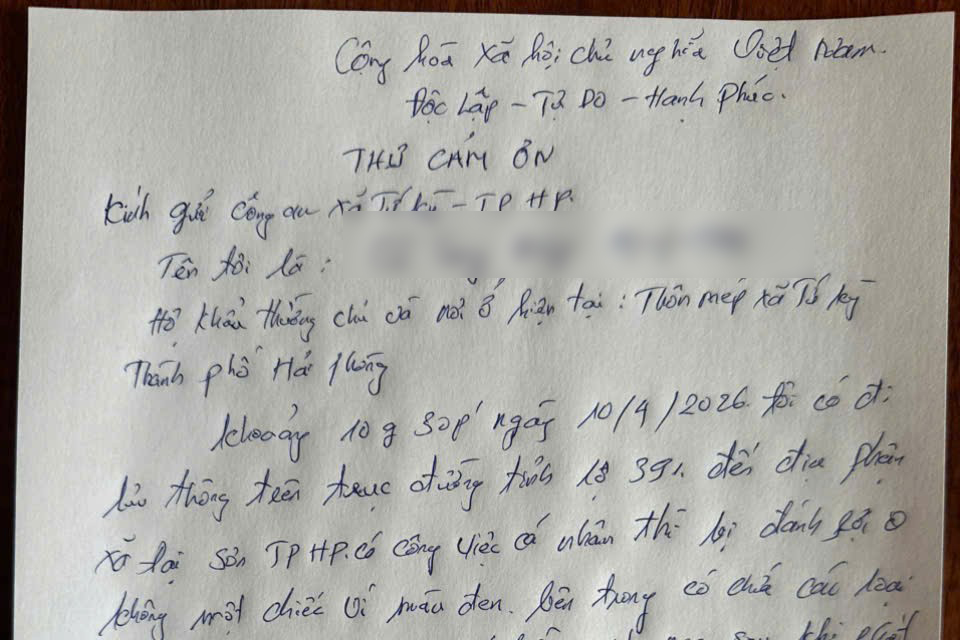 Cộng hòa xã hội chủ nghĩa Việt Nam.
Độc Lập - Tự Do - Hạnh Phúc.
THƯ CẢM ƠN
Kính gửi công an xã Tứ kỳ - TP HP.
Tên tôi là :
Hộ khẩu thường chú và nơi ở hiện tại : Thôn mép xã Tứ kỳ
Thành phố Hải Phòng
khoảng 10 g 30p' ngày 10/4/2026. tôi có đi
lưu thông trên trục đường tỉnh lộ 391. đến địa phận
xã Đại Sơn TP HP. có công việc cá nhân thì bị đánh rơi
không một chiếc ví màu đen. bên trong có chứa các loại
sau khi